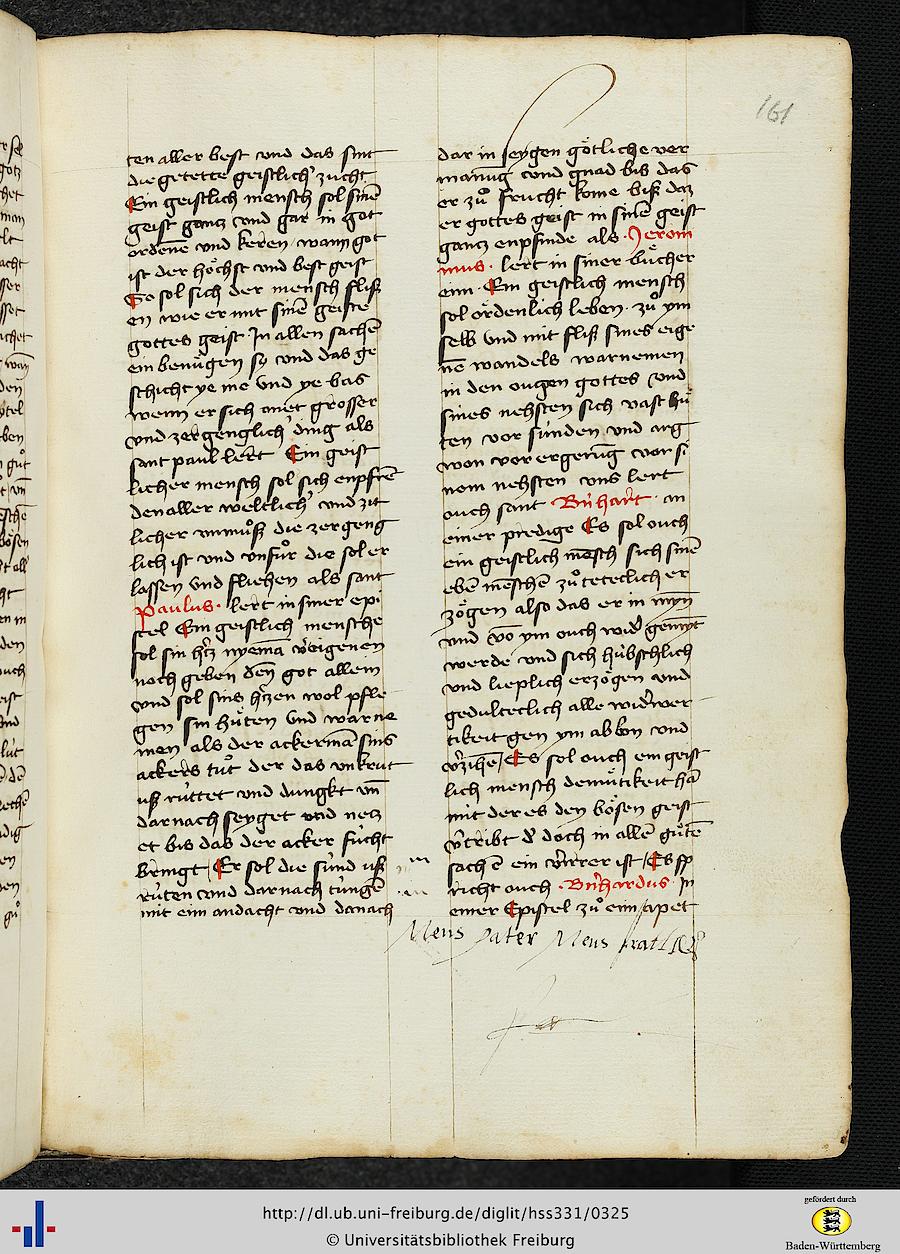 161
ten aller best vnd das sint
die getette geistlich' zucht
Ein geistlich mensch sol sinē
geist gancz vnd gar in got
ordenē vnd keren / wann got
ist der höchst vnd best geist
So sol sich der mensch fliß
en wie er mit sinē geiste
gottes geist In allen sachē
ein benügen sy vnd das ge
schicht ye me vnd ye bas
wenn er sich anet grosser
vnd zergenglich' ding als
sant paul lert Ein geist
licher mensch sol sich enpfrē
den aller weltlich' vnd zit
licher vnmůß die zergeng
lich ist vnd vnfůr die sol er
lassen vnd fliehen als sant
Paulus · lert in siner epi
stel Ein geistlich mensche
sol sin hᵉtz nyemā v̄eigenen
noch geben den got allein
vnd sol sins hᵉtzen wol pfle
gen sin hüten vnd warne
men als der ackermā sins
ackers tůt der das vnkrut
uß rüttet vnd dungkt vn̄
darnach seyget vnd netz
et bis das der acker fucht
bringt / Er sol die sünd uß
rüten vnd darnach tüngē
mit eim andacht vnd danach
dar in seygen götliche ver
manūg vnd gnad bis das
er zů frucht kome biß daz
er gottes geist in sinē geist
gancz enpfinde als · Jeroni
mus · lert in siner bücher
eim · Ein geistlich mensch
sol ordenlich leben · zů ym
selb vnd mit fliß sines eige
nē wandels warnemen
in den ougen gottes vnd
sines nehsten sich vast hü
ten vor sünden vnd arg
won vor ergerūg vor si
nem nehsten vns lert
ouch sant · Bn̄hart · an
einer predige Es sol ouch
ein geistlich mēsch sich sinē
ebē mēschē zů teteclich er
zögen also das er in mÿn
vnd vō ym ouch wid' gemÿt
werde vnd sich hübschlich
vnd lieplich erzögen vnd
gedulteclich alle wid'wer
tikeit gen ym ab bon vnd
v̄zihē / Es sol ouch ein geist
lich mensch demütikeit hā
mit der es den bösen geist
v̄tribt d' doch in allē gůtē
sachē ein v̄irrer ist / Es sp
richt ouch · Bn̄hardus · In
einer Epistel zů eim apet
Meus pater Meus
http://dl.ub.uni-freiburg.de/diglit/hss331/0325
© Universitätsbibliothek Freiburg
gefördert durch
Baden-Württemberg